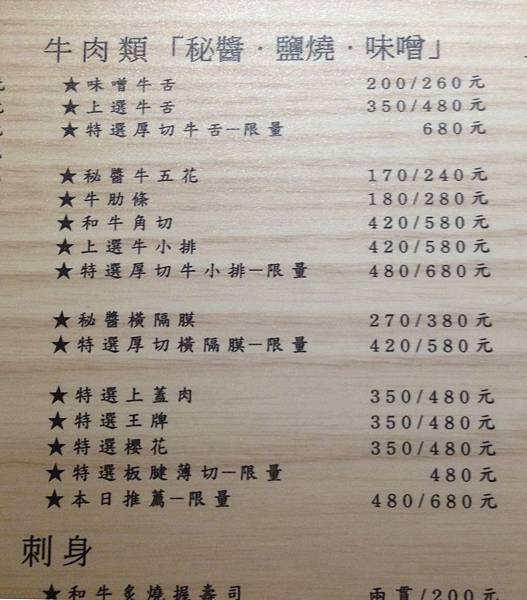 牛肉類「秘醬·鹽燒·味噌」
★味噌牛舌 200/260元
★上選牛舌 350/480元
★特選厚切牛舌—限量 680元
★秘醬牛五花 170/240元
★牛肋條 180/280元
★和牛角切 420/580元
★上選牛小排 420/580元
★特選厚切牛小排—限量 480/680元
★秘醬橫隔膜 270/380元
★特選厚切橫隔膜—限量 420/580元
★特選上蓋肉 350/480元
★特選王牌 350/480元
★特選櫻花 350/480元
★特選板腱薄切—限量 480元
★本日推薦—限量 480/680元
刺身
★和牛炙燒握壽司 兩貫/200元